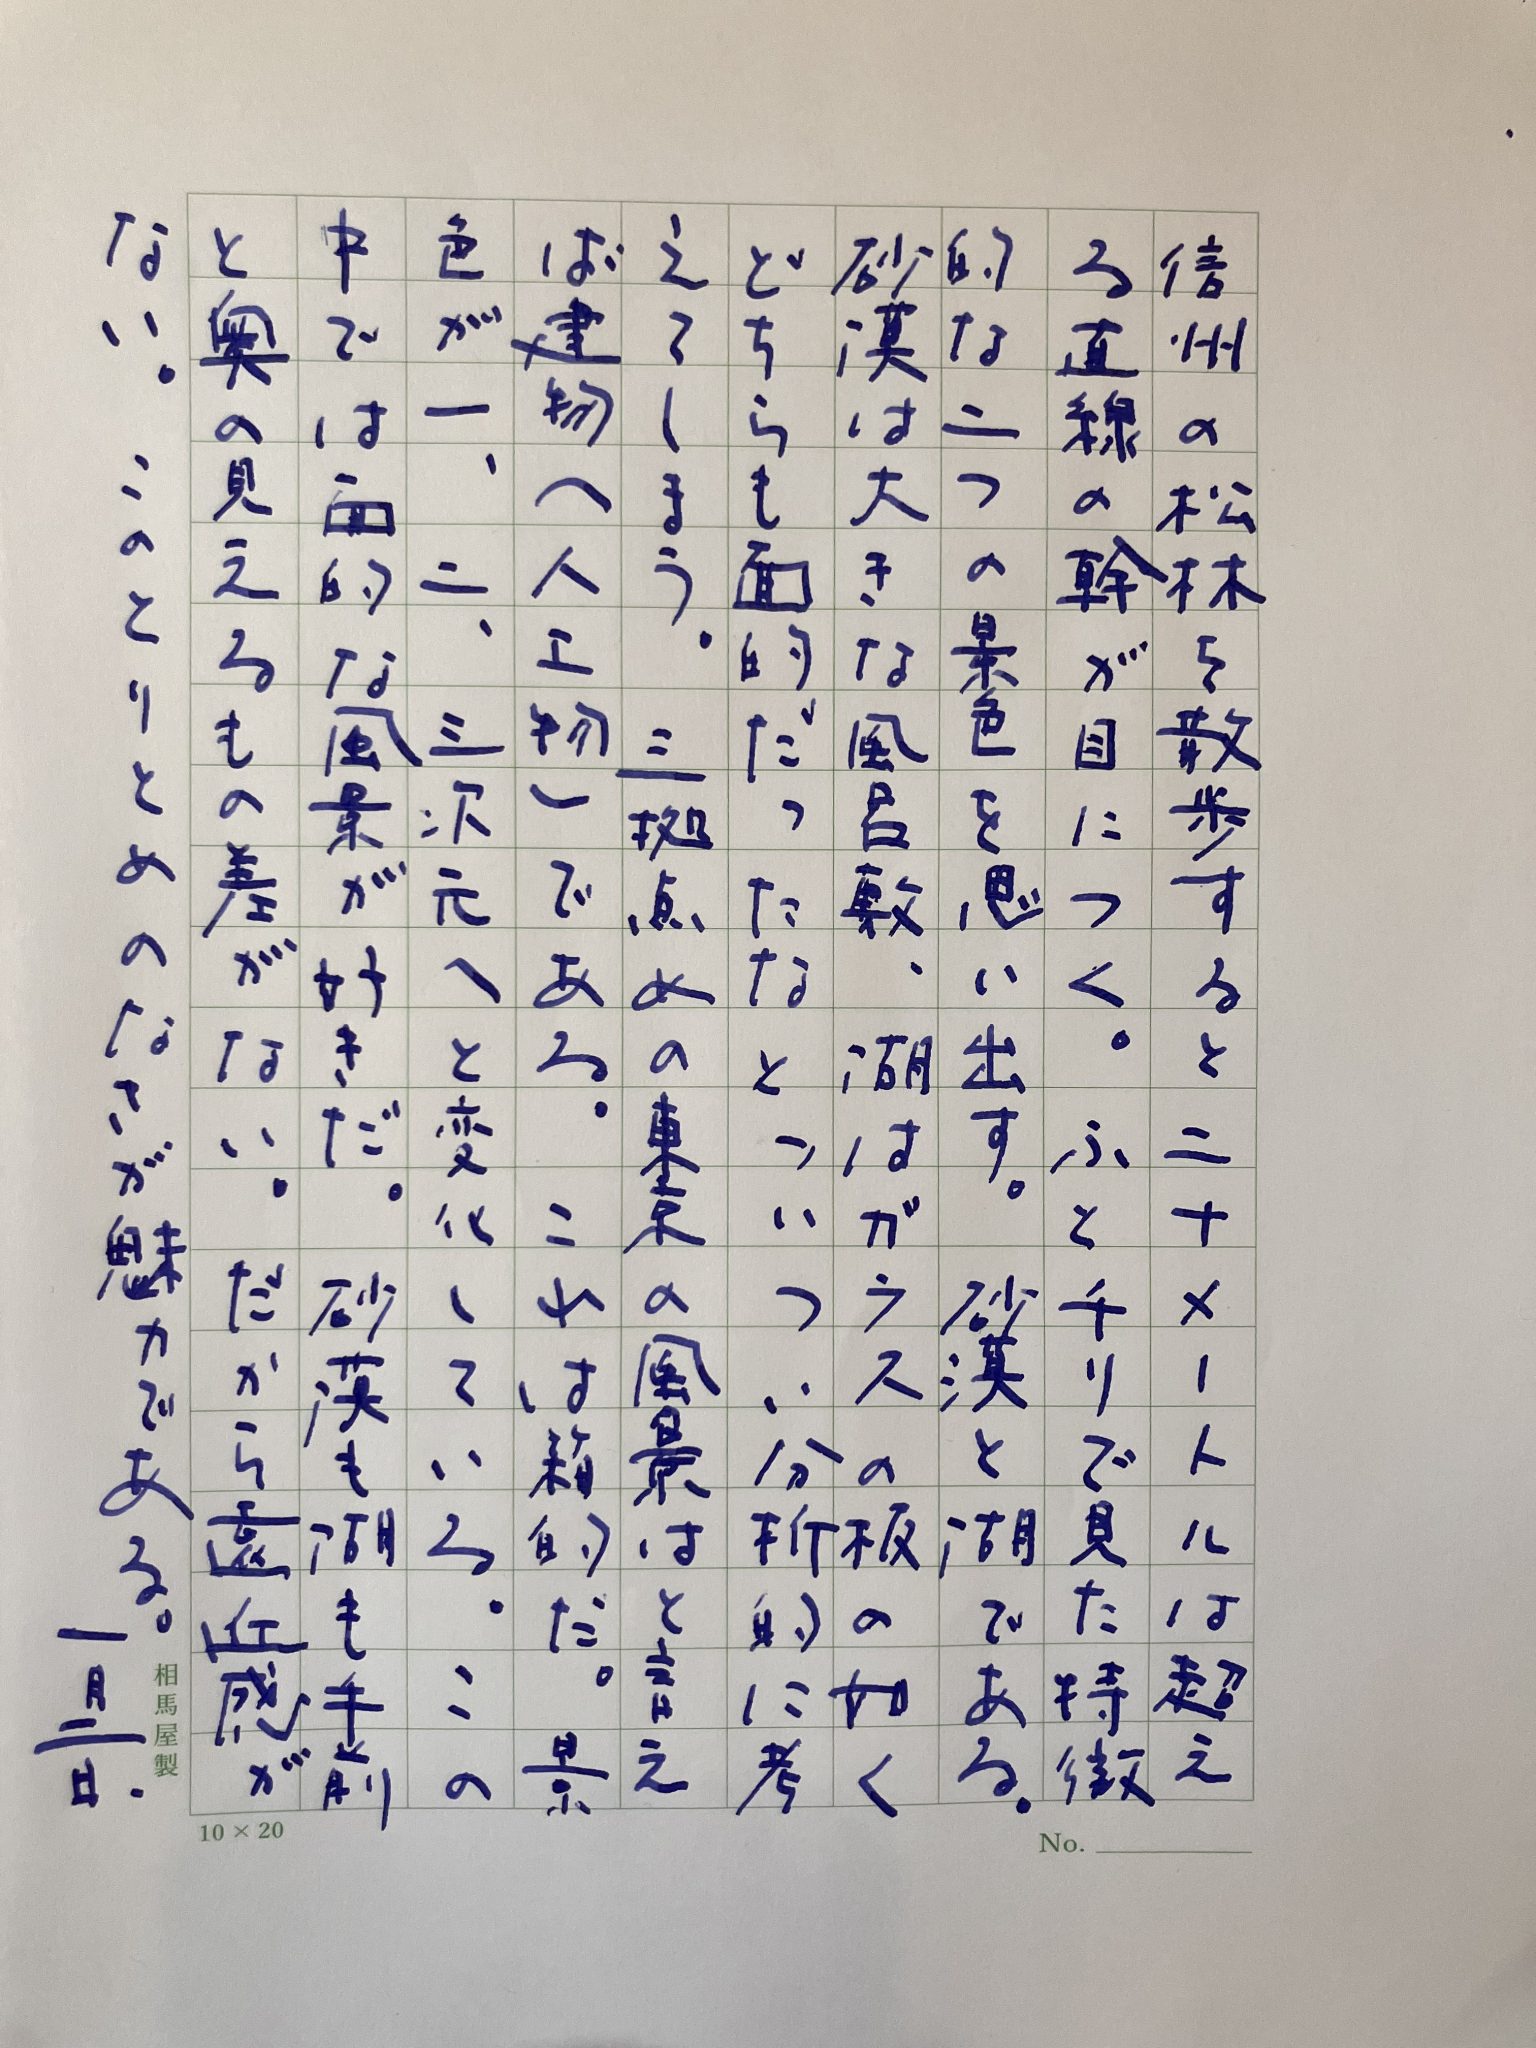 信州の松林を散歩すると二十メートルは超え
る直線の幹が目につく。ふとチリで見た特徴
的な二つの景色を思い出す。砂漠と湖である。
砂漠は大きな風呂敷、湖はガラスの板の如く
どちらも面的だったなとついつい分析的に考
えてしまう。三拠点めの東京の風景はと言え
ば建物へ人工物)である。これは箱的だ。景
色が一、二、三次元へと変化している。この
中では面的な風景が好きだ。砂漠も湖も手前
と奥の見えるもの差がない。だから遠近感が
ない。このとりとめのなさが魅力である。
一月三日.
相馬屋製
10×20
No.